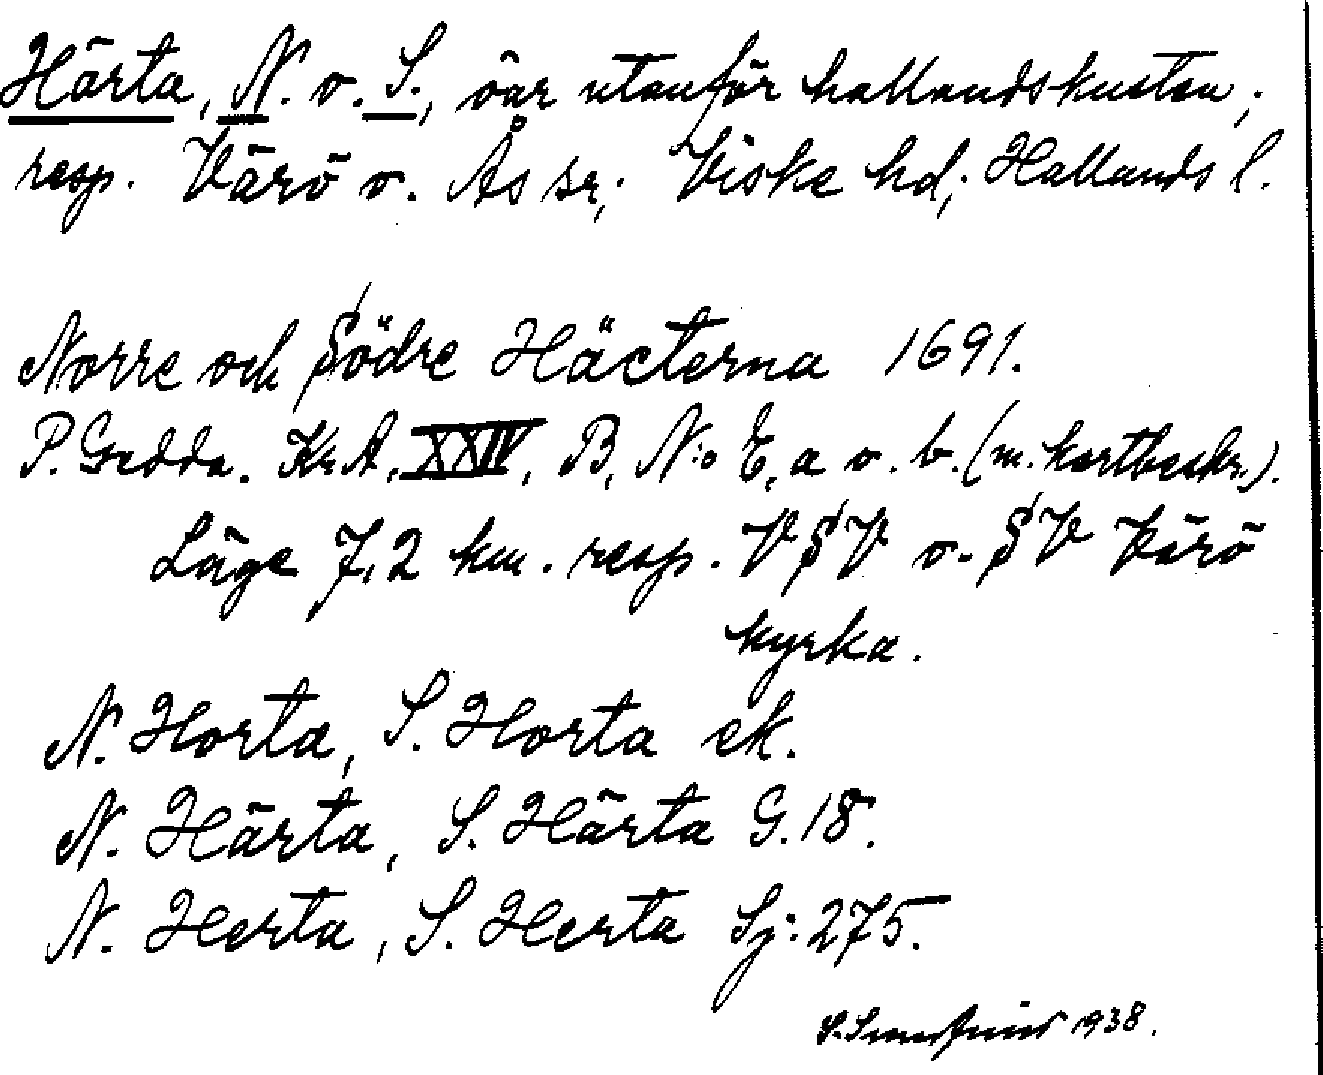 Härta, N. o. S., öar utanför hallandskusten,
resp. Värö o. Ås sr, Viske hd, Hallands l.
Norre och Södre Häcterna 1691.
P. Gedda. Kr.A. XXIV, B, N:o E, a o. b. (m. kartbeskr.).
Läge 7,2 km. resp. VSV o. SV Värö
kyrka.
N. Horta, S. Horta ek.
N. Härta, S. Härta G. 18.
N. Herta, S. Herta Sj: 275.
1938.